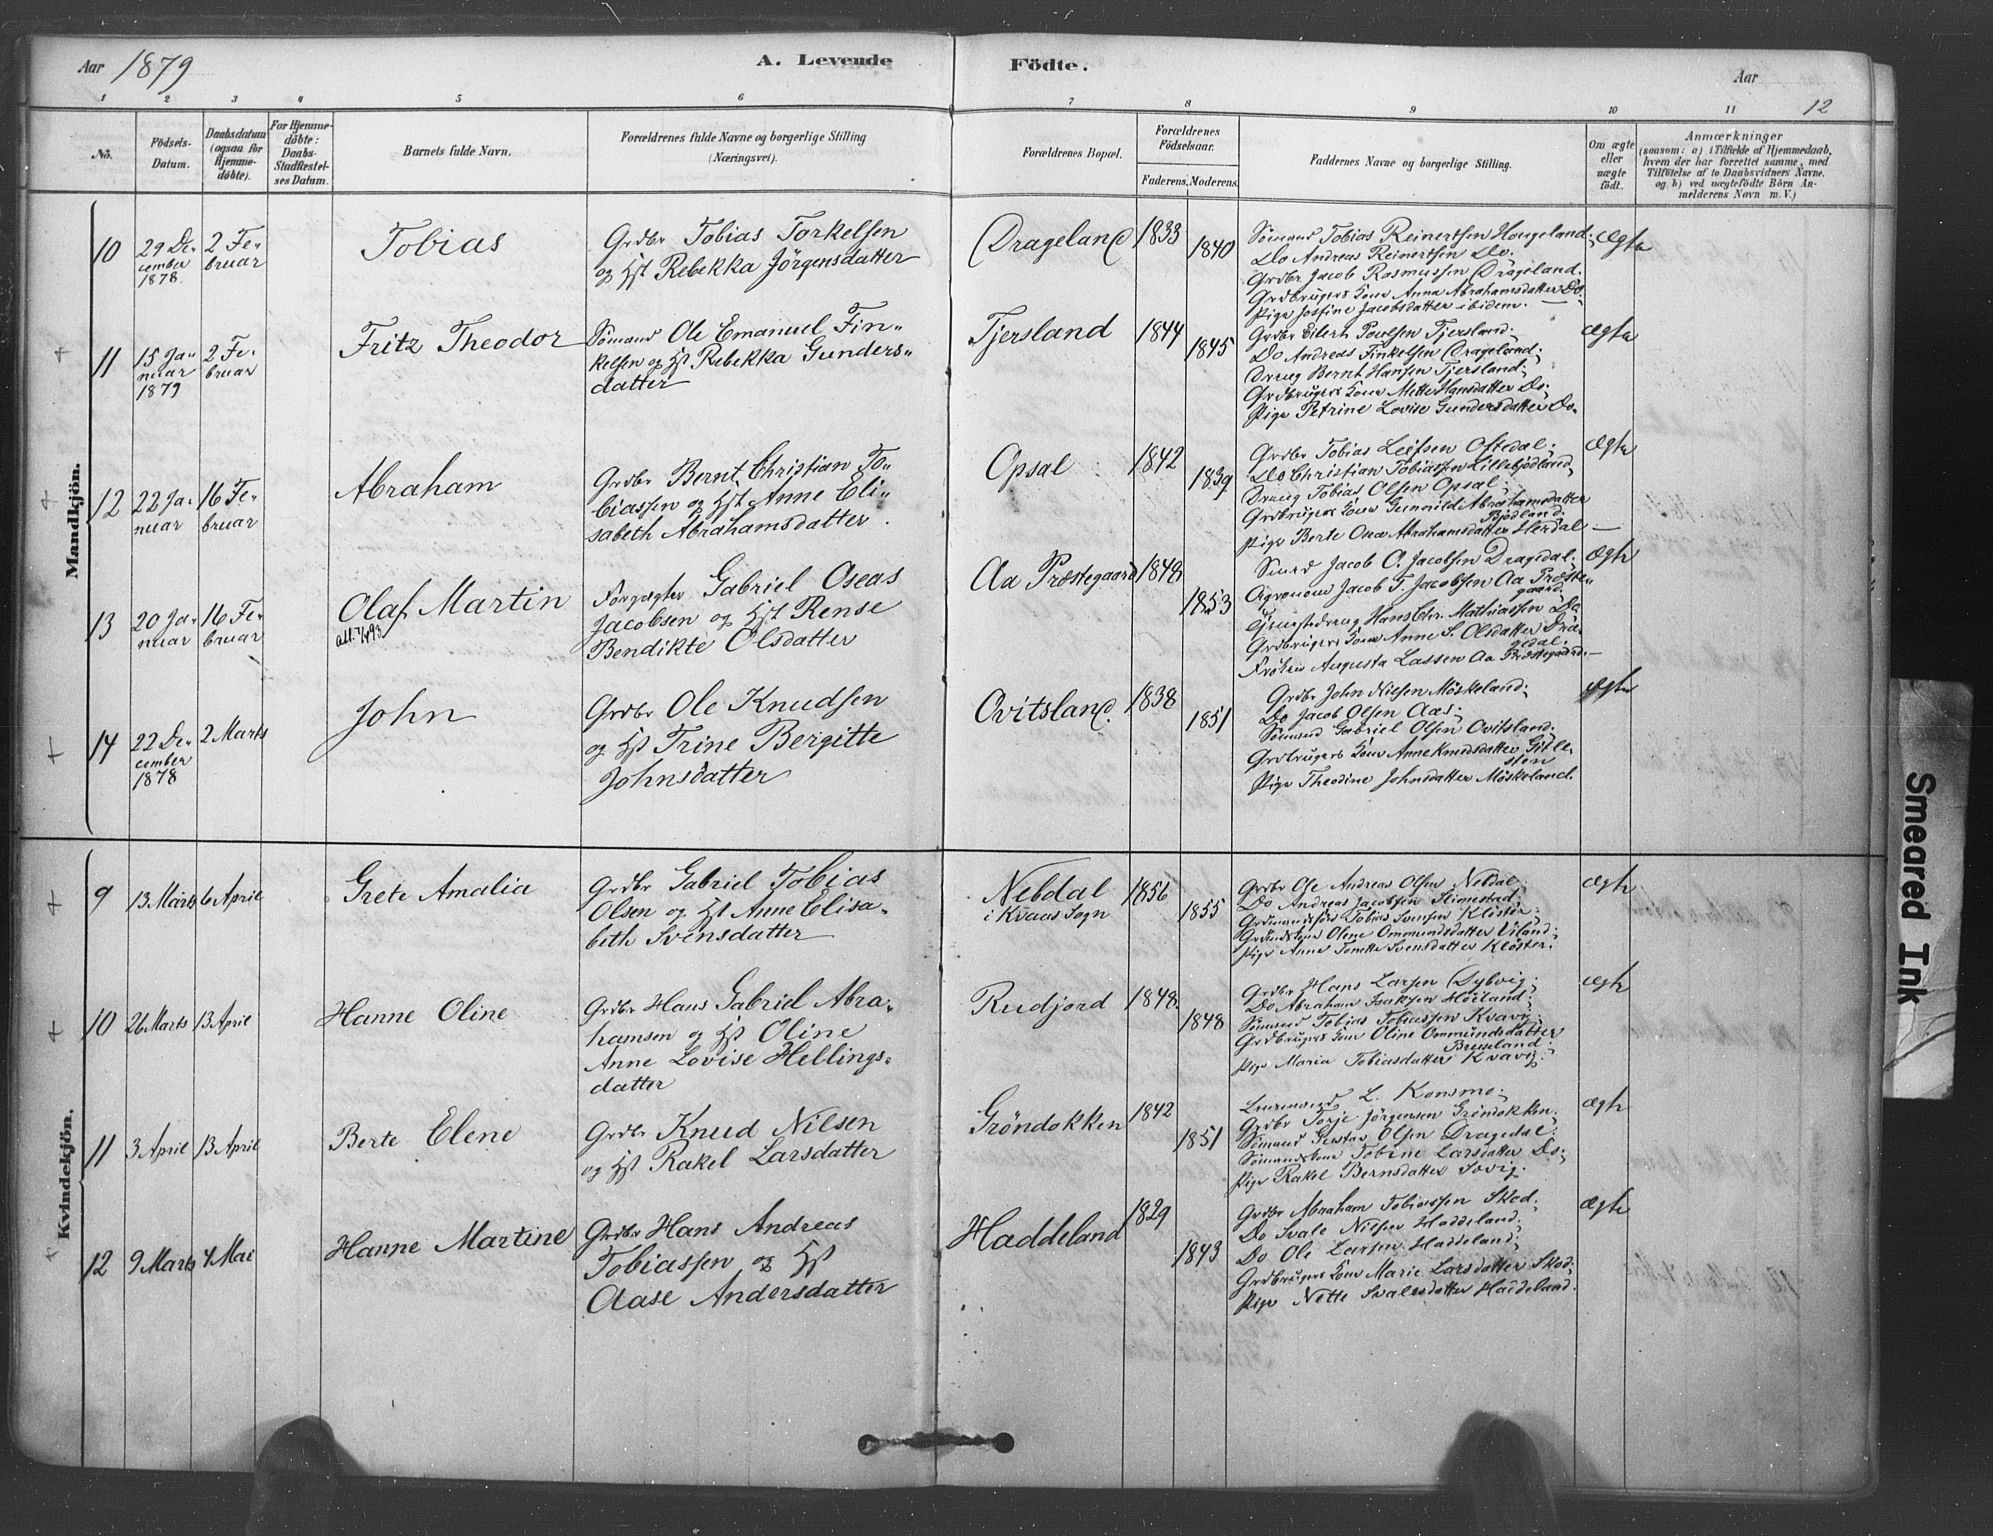 Aar 1879
A. Levende Födte.
Aar
12
1 2 3 4 5 6 7 8 9 10 11
No.
Födsels-Datum.
Daabsdatum (ogsaa for Hjemme-döbte).
For Hjemme-döbte: Daabs-Stadfæstel-ses Datum.
Barnets fulde Navn.
Forældrenes fulde Navne og borgerlige Stilling (Næringsvei).
Forældrenes Bopæl.
Forældrenes Födselsaar.
Faderens. Moderens.
Faddernes Navne og borgerlige Stilling.
Om ægte eller uægte födt.
Anmærkninger
(saasom: a) i Tilfælde af Hjemmedaab,
hvem der har forrettet samme, med
Tilföielse af to Daabsvidners Navne,
og b) ved uægtefödte Börn An-
melderens Navn m. V.)
Mandkjön.
10
29 De-
cember
1878.
2 Fe-
bruar
Tobias
Grdbr Tobias Torkelsen
og Hst Rebekka Jörgensdatter
Drageland
1833
1840
Sömand Tobias Reinertsen Hougeland;
Do Andreas Reinertsen Do;
Grdbr Jacob Rasmussen Drageland;
Grdbrugers Kone Anna Abrahamsdatter Do;
Pige Josfine Jacobsdatter ibidem.
Ægte
11
15 Ja-
nuar
1879
2 Fe-
bruar
Fritz Theodor
Sömand Ole Emanuel Fin-
kelsen og Hst Rebekka Gunders-
datter
Tjersland
1844
1845
Grdbr Eilert Poulsen Tjersland;
Do Andreas Finkelsen Drageland;
Dreng Bernt Hansen Tjersland;
Grdbrugers Kone Mette Hansdatter Do;
Pige Petrine Lovise Gundersdatter Do.
ægte
12
22 Ja-
nuar
16 Fe-
bruar
Abraham
Grdbr Bernt Christian To-
biassen og Hst Anne Eli-
sabeth Abrahamsdatter.
Opsal
1842
1839
Grdbr Tobias Leifsen Oftedal;
Do Christian Tobiassen Lillebjödland;
Dreng Tobias Olsen Opsal;
Grdbrugers Kone Gunvild Abrahamsdatter
Bjödland;
Pige Berte Abrahamsdatter Herdal
Ægte
13
20 Ja-
nuar
16 Fe-
bruar
Olaf Martin
Forpagter Gabriel Oseas
Jacobsen og Hst Rense
Bendikte Olsdatter
Aa Præstegaard
1848
1853
Smed Jacob O. Jacobsen Dragedal;
Agronom Jacob T. Jacobsen Aa Præste-
gaard;
Tjenestedreng Hans Chr. Mathiassen Do
Grdbrugers Kone Anne S. Olsdatter Dra-
gedal;
Fröken Augusta Lassen Aa Præstegaard.
Ægte
14
22 De-
cember
1878
2 Marts
John
Grdbr Ole Knudsen
og Hst Trine Bergitte
Johnsdatter
Ovitsland.
1838
1851
Grdbr John Nilsen Möskeland;
Do Jacob Olsen Aas;
Sömand Gabriel Olsen Ovitsland;
Grdbrugers Kone Anne Knudsdatter Gitle-
sten
Pige Theodine Johnsdatter Möskeland.
Ægte
Kvindekjön.
9
13 Marts
6 April
Grete Amalia
Grdbr Gabriel Tobias
Olsen og Hst Anne Elisa-
beth Svensdatter
Nebdal
i Kvaas Sogn
1856
1855
Grdbr Ole Andreas Olsen Nebdal;
Do Andreas Jacobsen Slimestad;
Tobias Svensen Klöster;
Olene Ommundsdatter Viland;
Pige Anne Tonette Svensdatter Klöster.
ægte
10
26 Marts
13 April
Hanne Oline
Grdbr Hans Gabriel Abra-
hamsen og Hst Oline
Anne Lovise Hellings-
datter
Rudjord
1848
1848
Grdbr Hans Larsen Dybvig;
Do Abraham Isaksen Hörland;
Sömand Tobias Tobiassen Kvavig;
Grdbrugers Kone Oline Ommundsdatter
Bruseland;
Pige Maria Tobiasdatter Kvavig.
ægte
11
3 April
13 April
Berte Elene
Grdbr Knud Nilsen
og Hst Rakel Larsdatter
Gröndokken
1842
1851
Lensmand L. Konsmo;
Grdbr Torje Jörgensen Gröndokken;
Sömand Gustav Olsen Dragedal;
Sömandskone Tobine Larsdatter Do;
Pige Rakel Berntsdatter Sövig.
ægte
12
9 Marts
4 Mai
Hanne Martine
Grdbr Hans Andreas
Tobiassen og Hst
Aase Andersdatter
Haddeland
1829
1843
Grdbr Abraham Tobiassen Skod;
Do Svale Nilsen Haddeland;
Do Ole Larsen Haddeland;
Grdbrugers Kone Marie Larsdatter Skod;
Pige Nette Svalesdatter Haddeland.
ægte
Smeared Ink